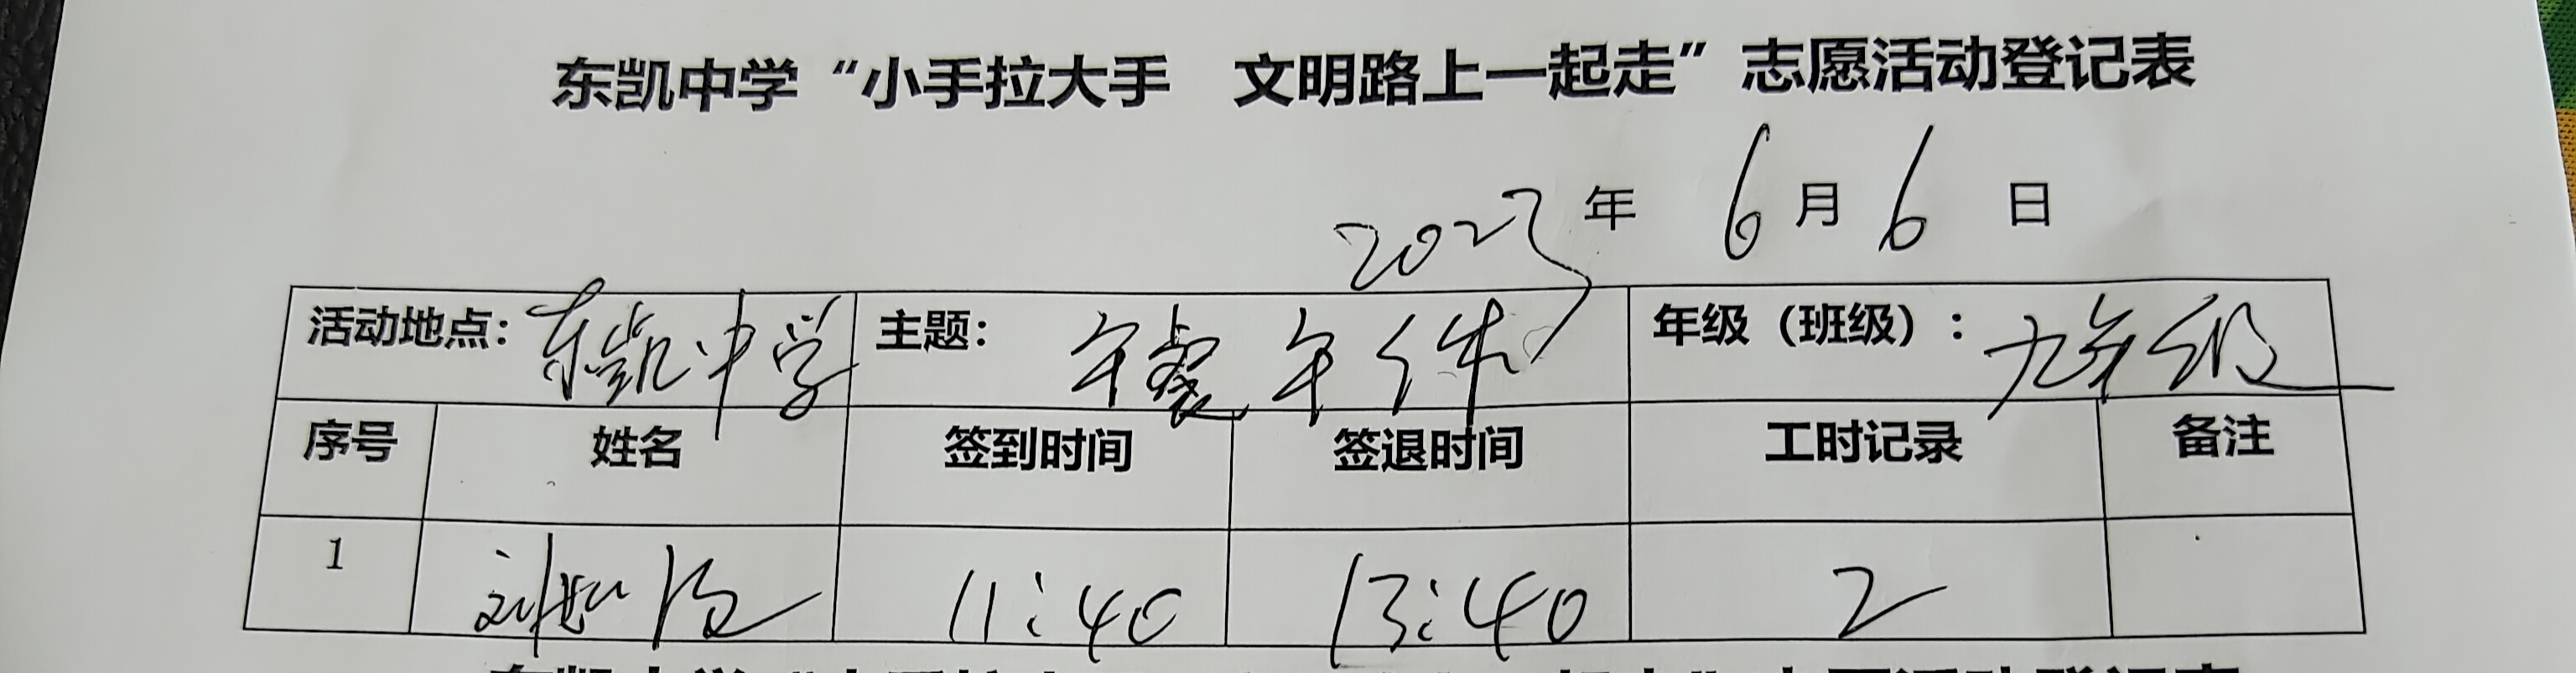 东凯中学“小手拉大手 文明路上一起走”志愿活动登记表
2023年 6月 6 日
活动地点：东凯中学 主题：午餐午休 年级（班级）：九年级
序号 姓名 签到时间 签退时间 工时记录 备注
1 刘 11:40 13:40 2